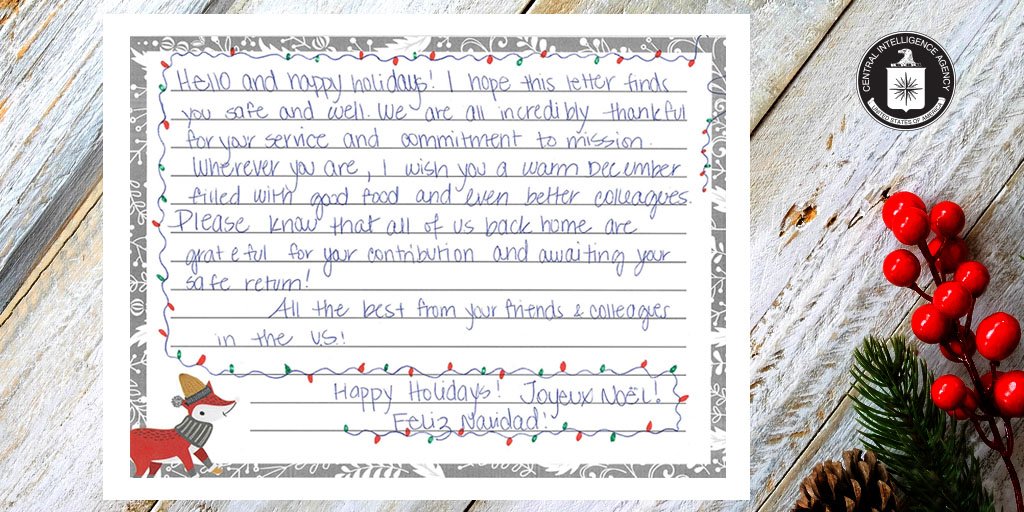 Hello and happy holidays! I hope this letter finds
you safe and well. We are all incredibly thankful
for your service and commitment to mission.
Wherever you are, I wish you a warm December
filled with good food and even better colleagues.
Please know that all of us back home are
grateful for your contribution and awaiting your
safe return!
All the best from your friends & colleagues
in the U.S!
Happy Holidays! Joyeux Noël!
Feliz Navidad!
CENTRAL INTELLIGENCE AGENCY
UNITED STATES OF AMERICA